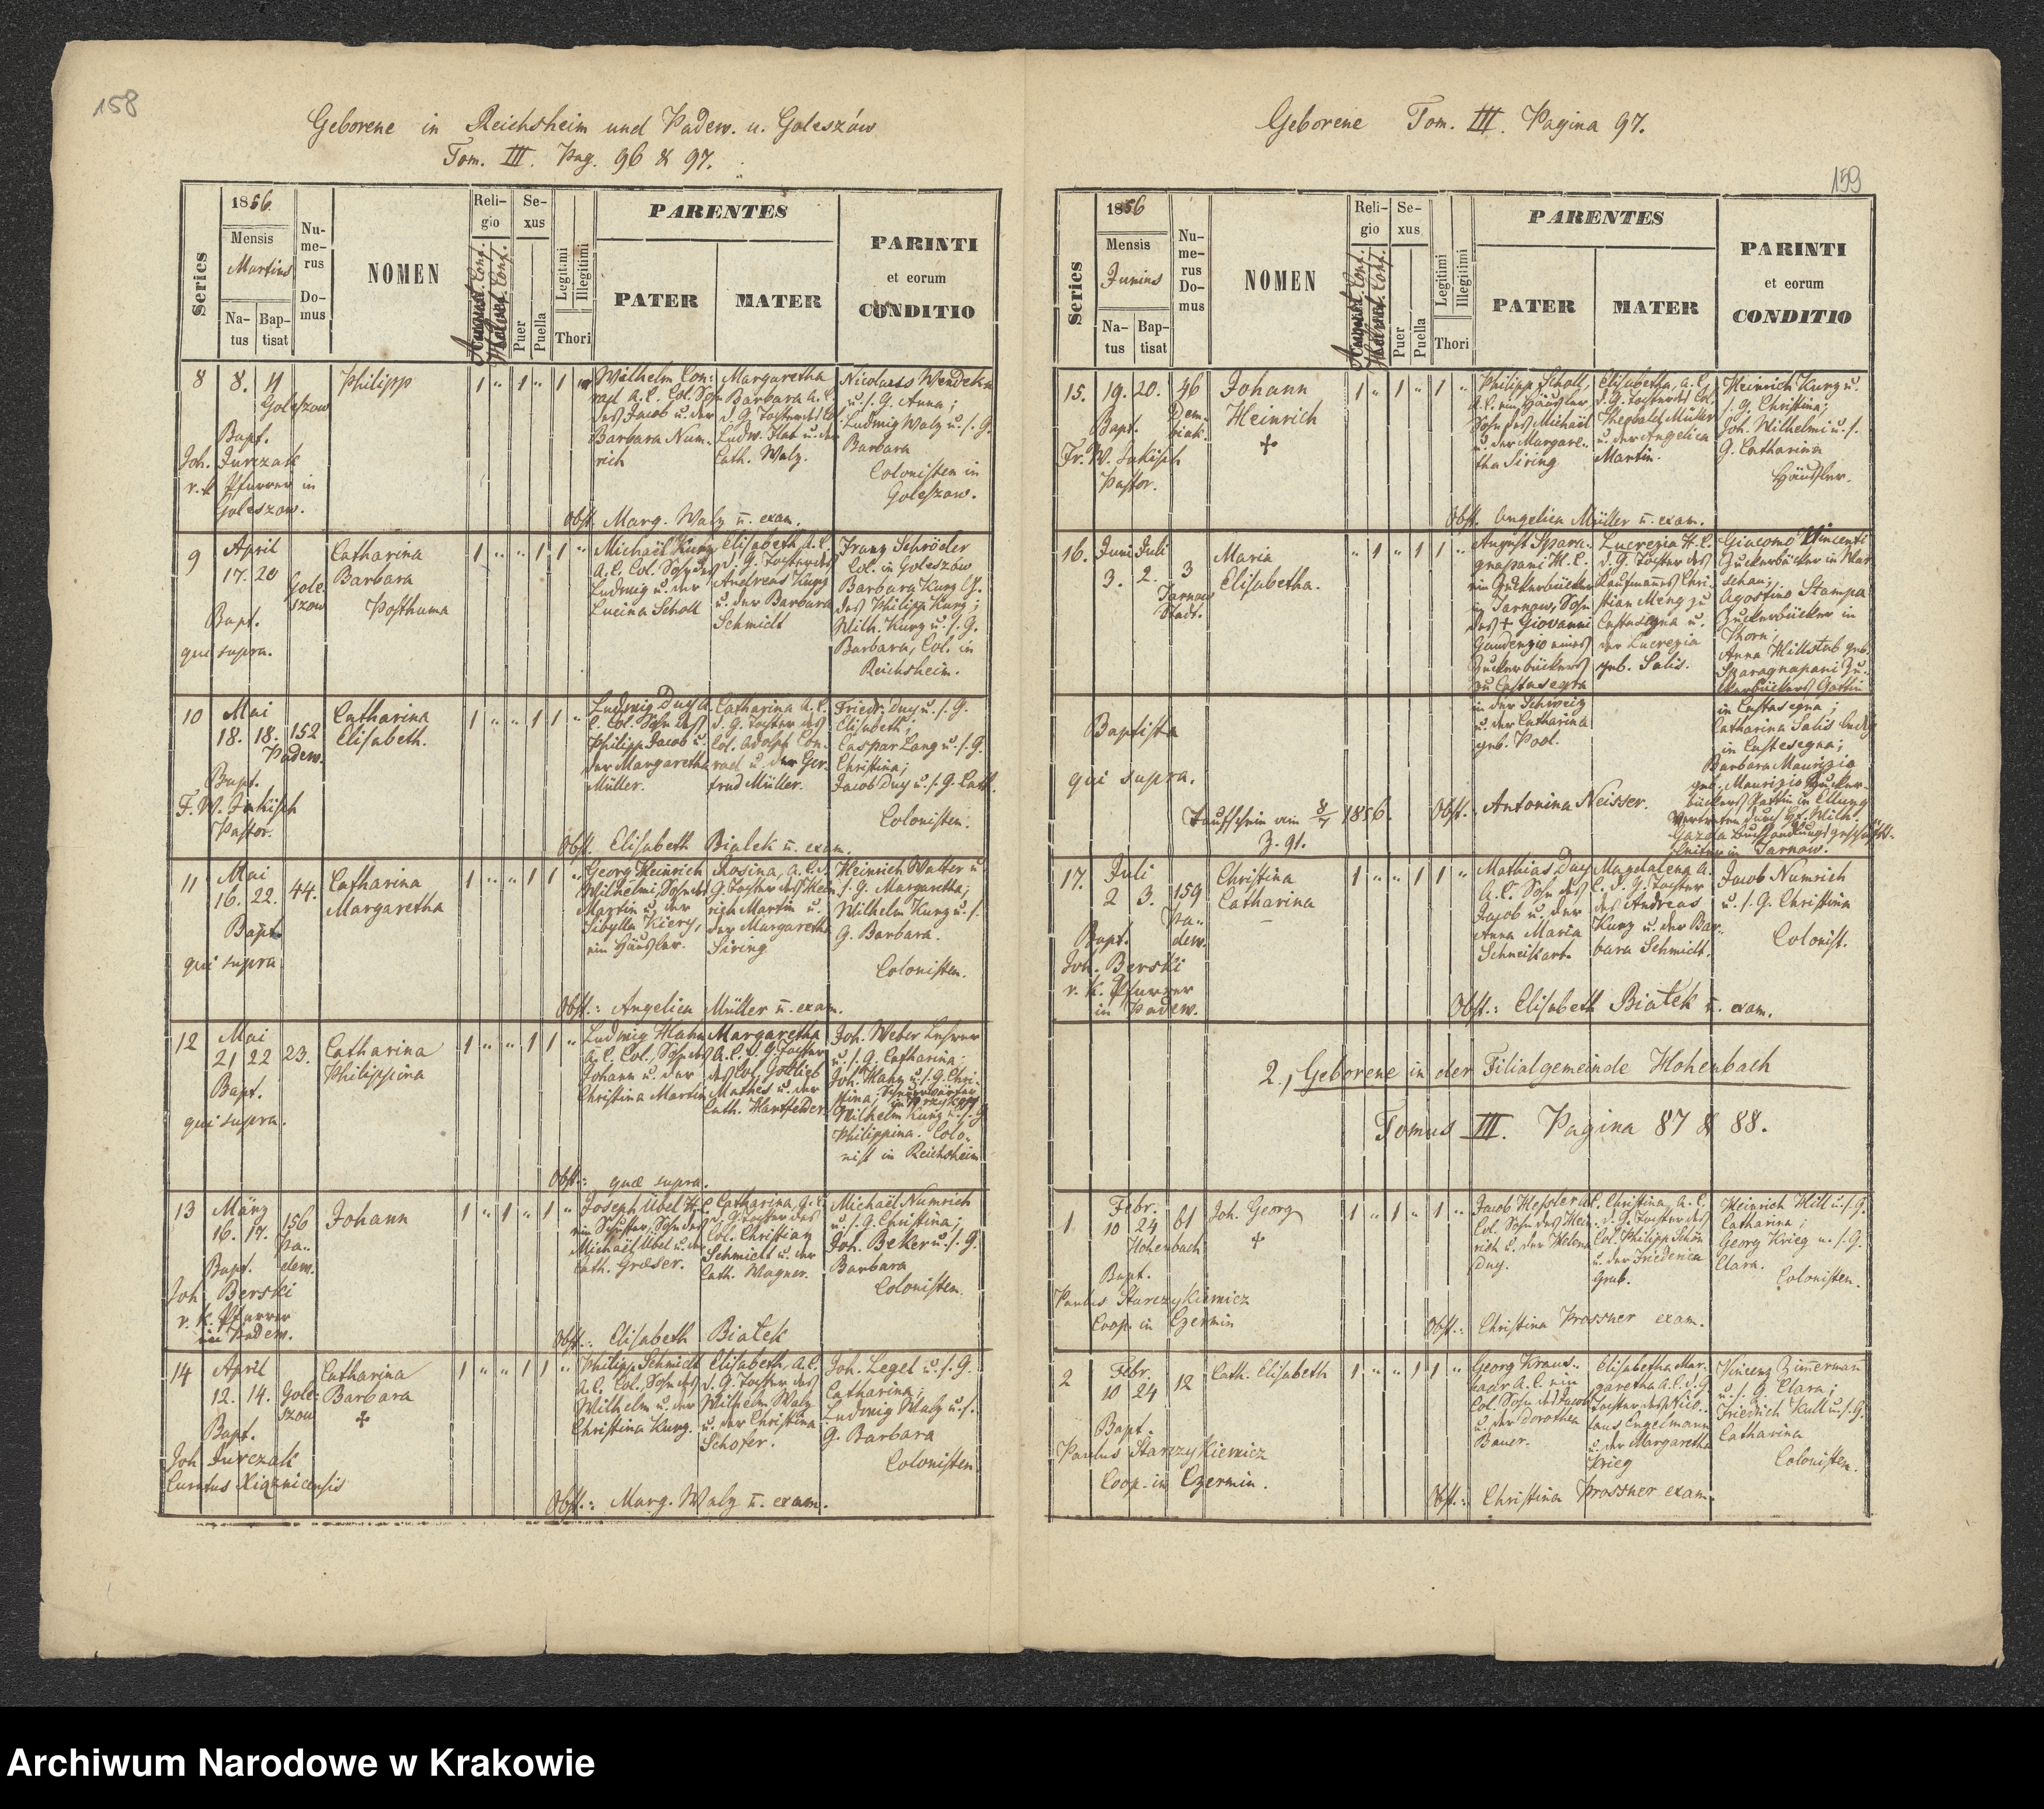 158
Geborene in Reichsheim und Padew. u. Goleszów
Tom. III. Pag. 96 & 97.
Series
1856
Mensis
Martius
Na-
tus
Bap-
tisat
Nu-
me-
rus
Do-
mus
NOMEN
Reli-
gio
August. Conf.
Helvet. Conf.
Se-
xus
Puer
Puella
Legitimi
Illegitimi
Thori
PARENTES
PATER
MATER
PARINTI
et eorum
CONDITIO
8
8. 11
Goleszow
Bapt.
Joh. Jurczak
r. k Pfarrer in
Goleszow.
Philipp
1 " 1 " 1 "
Wilhelm Con-
rad A. C. Col. Sohn
des Jacob u. der
Barbara Num-
rich
Margaretha
Barbara A. C.
d. G. Tochter des Col.
Ludw. Hat u. der
Cath. Walz.
Nicolaus Wendehn
u. s. G. Anna;
Ludwig Walz u. s. G.
Barbara
Colonisten in
Goleszow.
Obst. Marg. Walz u. exam.
9
April
17. 20
Gole-
szow
Bapt.
qui supra.
Catharina
Barbara
Posthuma
1 " " 1 1 "
Michael Kurz
A. C. Col. Sohn des
Ludwig u. der
Lucina Scholl
Elisabeth A. C.
d. G. Tochter des
Andreas Kurz
u. der Barbara
Schmidt
Franz Schröder
Col. in Goleszow
Barbara Kurz G.
des Philipp Kurz;
Wilh. Kurz u. s. G.
Barbara, Col. in
Reichsheim.
10
Mai
18. 18. 152
Padew.
Bapt.
F. W. Jakisch
Pastor.
Catharina
Elisabeth.
1 " " 1 1 "
Ludwig Duy A.
C. Col. Sohn des
Philipp Jacob u.
der Margaretha
Müller.
Catharina A. C.
d. G. Tochter des
Col. Adolph Con-
rad u. der Ger-
trud Müller.
Friedr. Duy u. s. G.
Elisabeth;
Caspar Lang u. s. G.
Christina;
Jacob Duy u. s. G. Cath.
Colonisten.
Obst. Elisabeth Bialek u. exam.
11
Mai
16. 22. 44.
Bapt.
qui supra
Catharina
Margaretha
1 " " 1 1 "
Georg Heinrich
Wilhelmi, Sohn des
Martin u. der
Sibylla Kiery,
ein Häusler.
Rosina, A. C. d.
G. Tochter des Hein-
rich Martin u.
der Margaretha
Siring
Heinrich Walter u.
s. G. Margaretha;
Wilhelm Kurz u. s.
G. Barbara.
Colonisten.
Obst.: Angelica Müller u. exam.
12
Mai
21 22 23.
Bapt.
qui supra.
Catharina
Philippina
1 " " 1 1 "
Ludwig Hahn
A. C. Col., Sohn des
Johann u. der
Christina Martin
Margaretha
A. C. d. G. Tochter
des Col. Gottlieb
Mathes u. der
Cath. Hartfelder
Joh. Weber Lehrer
u. s. G. Catharina;
Joh. Manz u. s. G. Chri-
stina;
Wilhelm Kurz u. s. G
Philippina. Colo-
nist in Reichsheim
Obst.: quae supra.
13
März
16. 17. 156
Pa-
dew.
Bapt.
Joh. Berski
r. k. Pfarrer
in Padew.
Johann
1 " 1 " 1 "
Joseph Übel H. C.
ein Schuster, Sohn des
Michael Übel u. der
Cath. Graeser.
Catharina, A. C.
d. G. Tochter des
Col. Christian
Schmidt u. der
Cath. Wagner.
Michael Numrich
u. s. G. Christina;
Joh. Beker u. s. G.
Barbara
Colonisten.
Obst.: Elisabeth Białek
14
April
12. 14.
Gole-
szow
Bapt.
Joh Jurczak
Curatus Xiąznicensis
Catharina
Barbara
✢
1 " " 1 1 "
Philipp Schmidt
A. C. Col., Sohn des
Wilhelm u. der
Christina Kurz.
Elisabeth, A. C.
d. G. Tochter des
Wilhelm Walz
u. der Christina
Schofer.
Joh. Legel u. s. G.
Catharina;
Ludwig Walz u. s.
G. Barbara
Colonisten
Obst.: Marg. Walz u. exam.
Geborene Tom. III. Pagina 97.
159
Series
1856
Mensis
Junius
Na-
tus
Bap-
tisat
Nu-
me-
rus
Do-
mus
NOMEN
Reli-
gio
August. Conf.
Helvet. Conf.
Se-
xus
Puer
Puella
Legitimi
Illegitimi
Thori
PARENTES
PATER
MATER
PARINTI
et eorum
CONDITIO
15.
19. 20. 46
Dem-
biak.
Bapt.
Fr. W. Jakisch
Pastor.
Johann
Heinrich
✢
1 " 1 " 1 "
Philipp Scholl,
A. C. ein Häusler
Sohn des Michael
u. der Margare-
tha Siring
Elisabetha, A. C.
d. G. Tochter des Col.
Theobald Müller
u. der Angelica
Martin.
Heinrich Kurz u.
s. G. Christina;
Joh. Wilhelmi u. s.
G. Catharina
Häusler.
Obst. Angelica Müller u. exam.
16.
Juni Juli
3. 2. 3
Tarnow
Stadt.
Maria
Elisabetha.
" 1 " 1 1 "
August Spara-
gnapani H. C.
ein Zuckerbäcker
in Tarnow, Sohn
des + Giovanni
Gaudenzio eines
Zuckerbäckers
zu Castasegna
in der Schweiz
u. der Catharina
geb. Pool.
Lucrezia H. C.
d. G. Tochter des
Kaufmanns Chri-
stian Meng zu
Castasegna u.
der Lucrezia
geb. Salis.
Giacomo Vincenti
Zuckerbäcker in War-
schau;
Agostino Stampa
Zuckerbäcker in
Thorn;
Anna Hillstab geb.
Sparagnapani Zu-
ckerbäckers Gattin
in Castasegna;
Catharina Salis ledig
in Castesegna;
Barbara Maurizio
geb. Maurizio Zucker-
bäckers Gattin in Elbing
Vertreten durch Hr. Wilh.
Gazda Buchhandlungsgeschäfts-
leiter in Tarnow.
Baptista
qui supra.
Taufschein am 8/7 1856.
Z. 91.
Obst. Antonina Neisser.
17.
Juli
2 3. 159
Pa-
dew.
Bapt.
Joh. Berski
r. k. Pfarrer
in Padew.
Christina
Catharina
1 " " 1 1 "
Mathias Duy
A. C. Sohn des
Jacob u. der
Anna Maria
Schneikart.
Magdalena A.
C. d. G. Tochter
des Andreas
Kurz u. der Bar-
bara Schmidt.
Jacob Numrich
u. s. G. Christina
Colonist.
Obst.: Elisabeth Białek u. exam.
2., Geborene in der Filialgemeinde Hohenbach
Tomus III. Pagina 87 & 88.
1.
Febr.
10 24 61
Hohenbach
Bapt.
Paulus Starczykiewicz
Coop. in Czermin
Joh. Georg
✢
1 " 1 " 1 "
Jacob Hessler A. C.
Col. Sohn des Hein-
rich u. der Helena
Duy.
Christina, A. C.
d. G. Tochter des
Col. Philipp Schön
u. der Friederica
Grub.
Heinrich Hill u. s. G.
Catharina;
Georg Krieg u. s. G.
Clara.
Colonisten.
Obst.: Christina Prossner exam.
2
Febr.
10 24 12
Bapt.
Paulus Starczykiewicz
Coop. in Czermin.
Cath. Elisabeth
1 " " 1 1 "
Georg Kraus-
haar A. C. ein
Col. Sohn des Jacob
u. der Dorothea
Bauer.
Elisabetha Mar-
garetha A. C. d. G.
Tochter des Nico-
laus Engelmann
u. der Margaretha
Krieg
Vincenz Zimmerman
u. s. G. Clara;
Friedrich Kull u. s. G.
Catharina
Colonisten.
Obst.: Christina Prossner exam.
Archiwum Narodowe w Krakowie